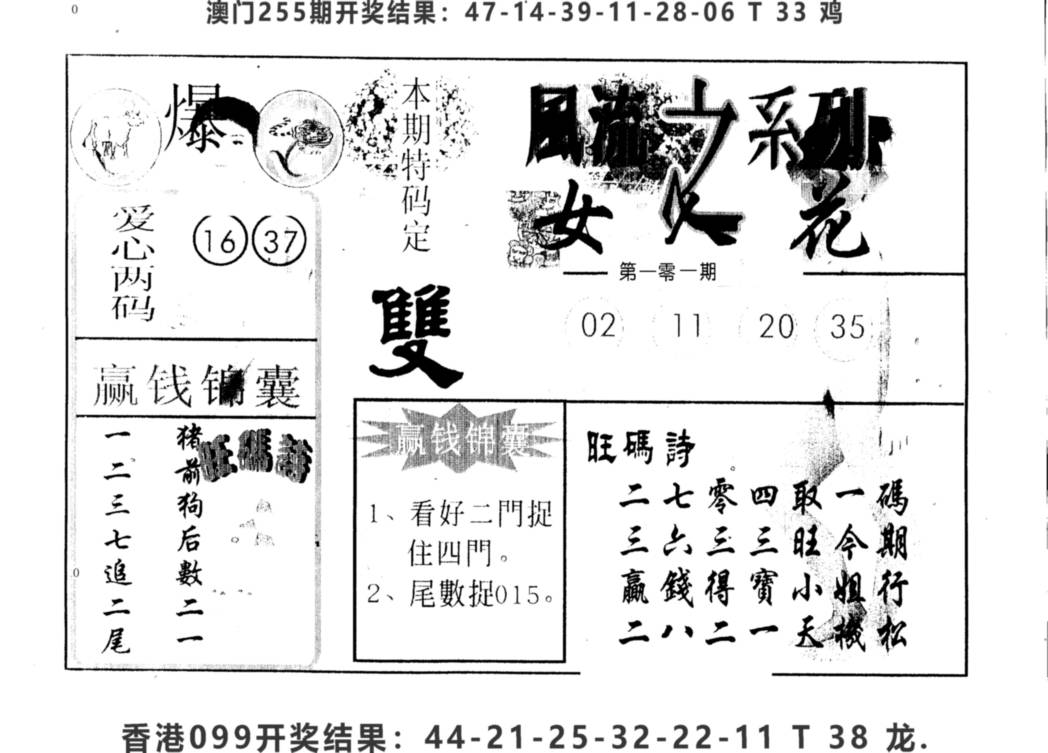 澳门255期开奖结果：47-14-39-11-28-06 T 33 鸡
爆
本期特码定
雙
风流之系列
女人花
第一零一期
爱心两码
16 37
02 11 20 35
赢钱锦囊
猪前狗后數二一
一二三七追二尾
旺碼詩
赢钱锦囊
1、看好二門捉
住四門。
2、尾數捉015。
旺碼詩
二七零四取一碼
三六三三旺今期
贏錢得寶小姐行
二八二一天機松
香港099开奖结果：44-21-25-32-22-11 T 38 龙.